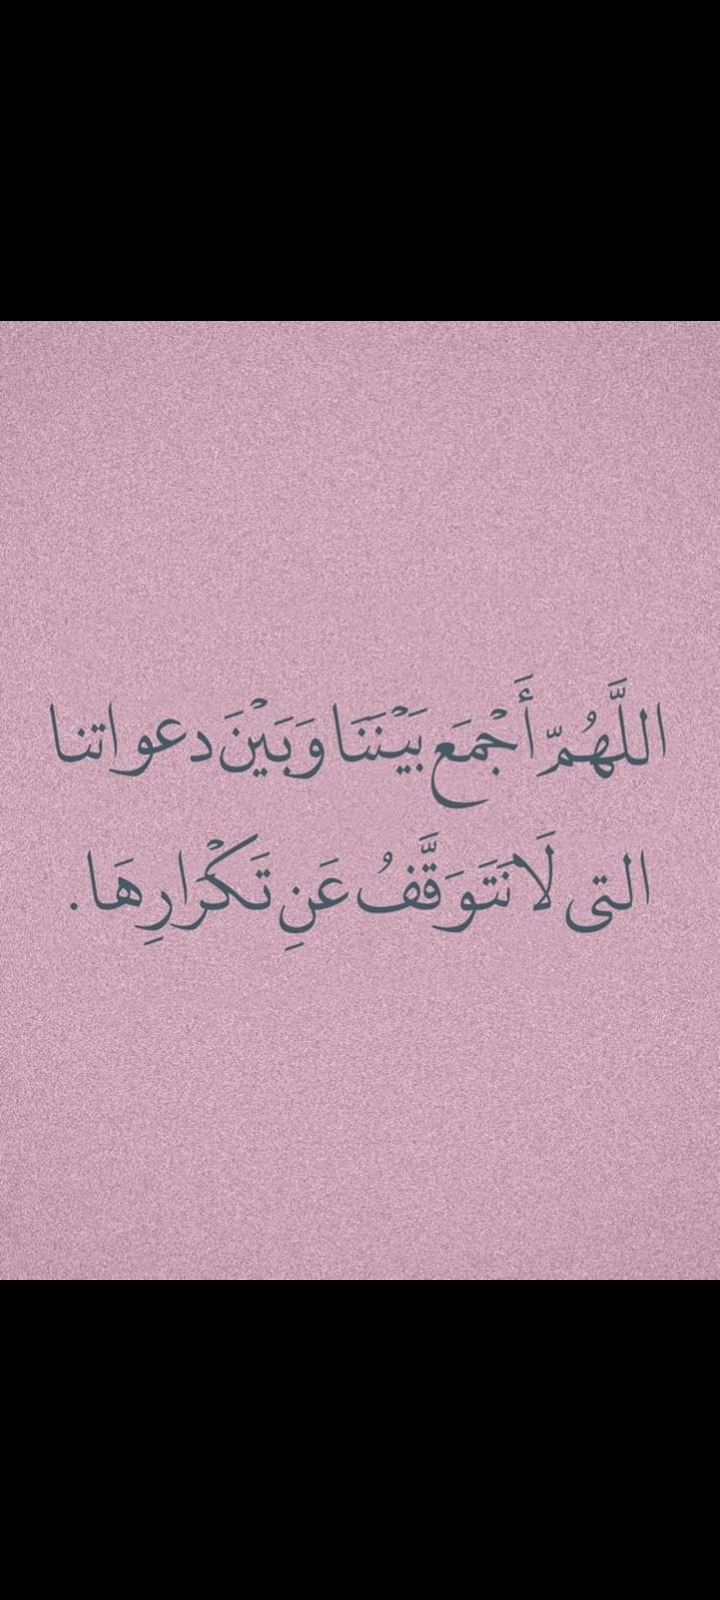 اللَّهُمّ أَجْمَع بَيْنَنَا وَبَيْنَ دعواتنا
التى لَا نَتَوَقَّفُ عَنِ تَكْرَارِهَا .